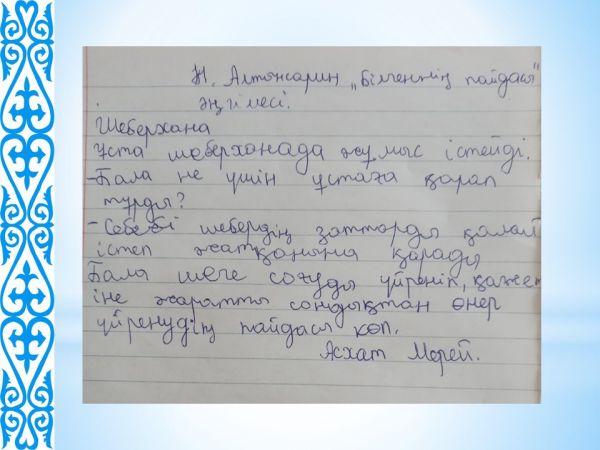 Ы. Алтынсарин „Білгеннің пайдасы"
әңгімесі.
Шеберхана
Ұста шеберханада жұмыс істейді.
-Бала не үшін ұстаға қарап
тұрды?
-Себебі шебердің заттарды қалай
істеп жатқанына қарады
Бала шеге соғуды үйреніп, қажет
іне жаратты сондықтан өнер
үйренудің пайдасы көп.
Асхат Мерей.